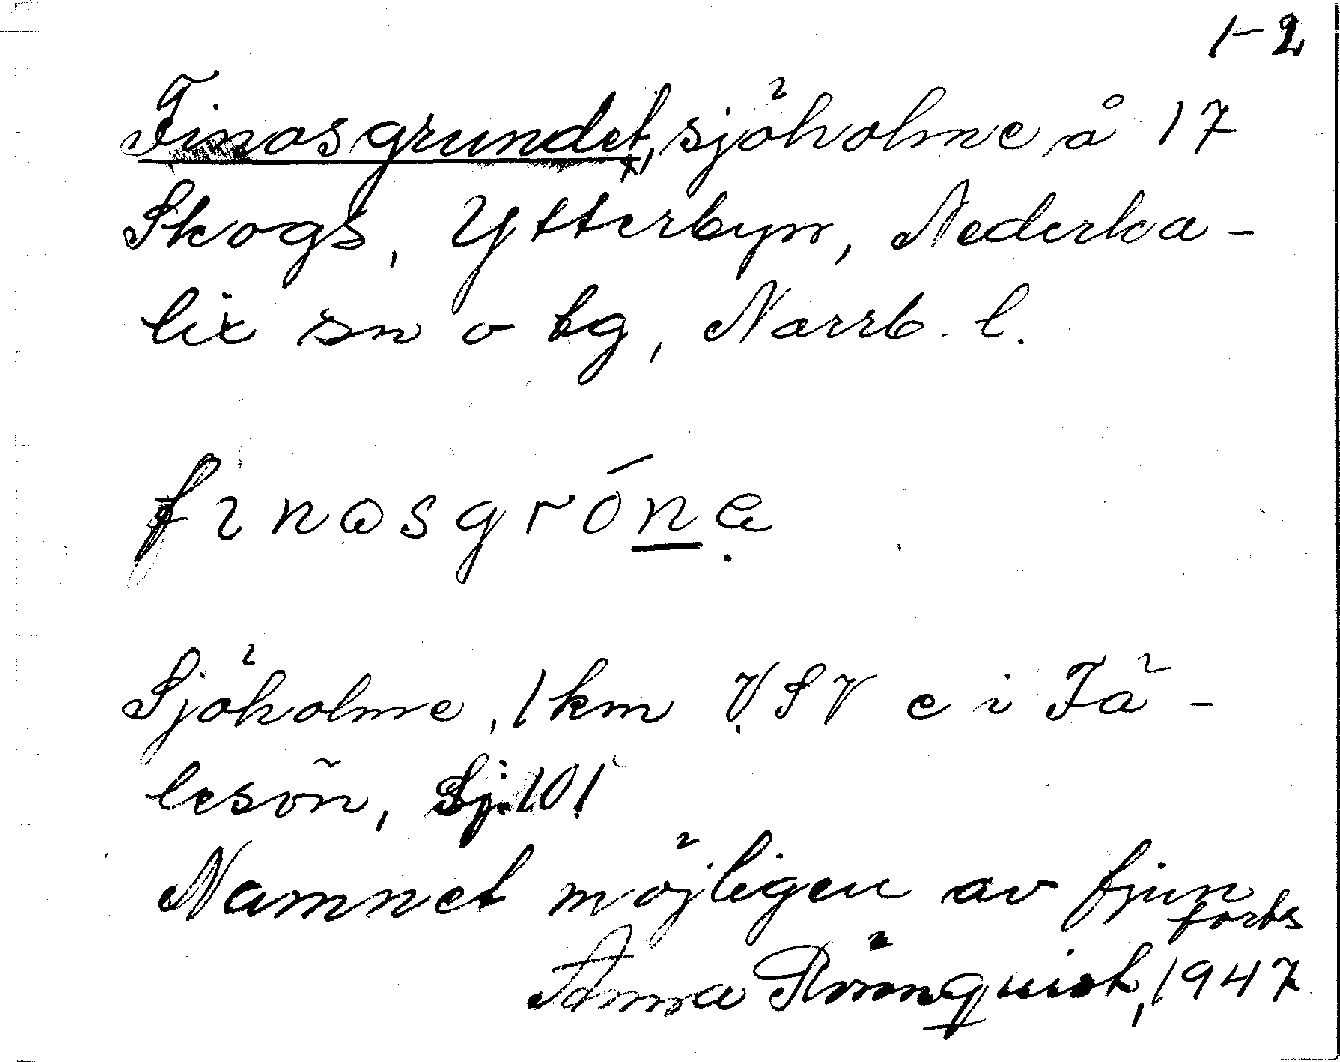 1-2
Finasgrundet, sjöholme å 17
Skogs, Ytterbyn, Nederka-
lix sn o bg, Norrb. l.
finasgróna
Sjöholme, 1 km VSV e i Få-
lesön, Sj. 101
Namnet möjligen av fjun
forts
Anna Rönnquist, 1947